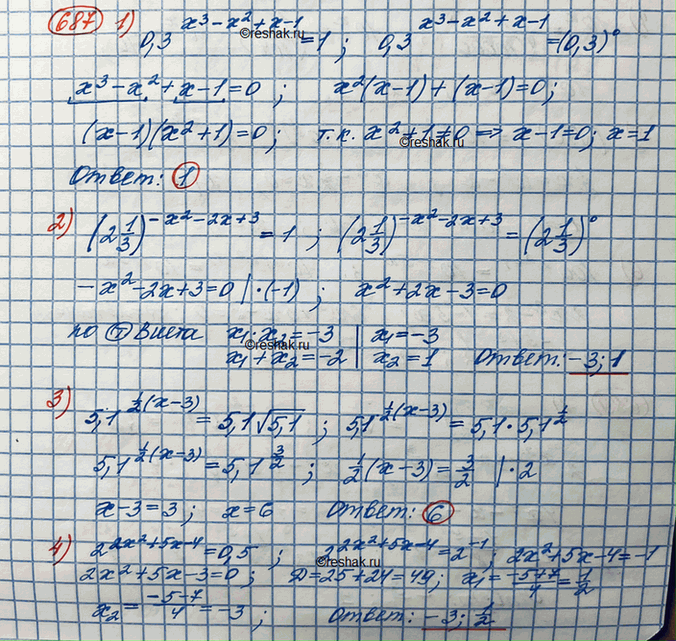 687 1) 0,3^(x³-x²+x-1) = 1 ; 0,3^(x³-x²+x-1) = (0,3)⁰
©reshak.ru
x³-x²+x-1=0 ; x²(x-1)+(x-1)=0;
(x-1)(x²+1)=0; т.к. x²+1≠0 => x-1=0; x=1
©reshak.ru
Ответ: 1
2) (2 1/3)^(-x²-2x+3) = 1 ; (2 1/3)^(-x²-2x+3) = (2 1/3)⁰
-x²-2x+3=0 |·(-1) ; x²+2x-3=0
по т Виета x₁·x₂=-3 | x₁=-3
©reshak.ru
x₁+x₂=-2 | x₂=1 Ответ: -3; 1
3) 5,1^(1/2(x-3)) = 5,1√5,1 ; 5,1^(1/2(x-3)) = 5,1·5,1^(1/2)
5,1^(1/2(x-3)) = 5,1^(3/2) ; 1/2(x-3) = 3/2 |·2
x-3=3 ; x=6 Ответ: 6
4) 2^(2x²+5x-4) = 0,5 ; 2^(2x²+5x-4) = 2⁻¹ ; 2x²+5x-4=-1
©reshak.ru
2x²+5x-3=0 ; D=25+24=49; x₁=(-5+7)/4=1/2
x₂=(-5-7)/4=-3 ; Ответ: -3; 1/2